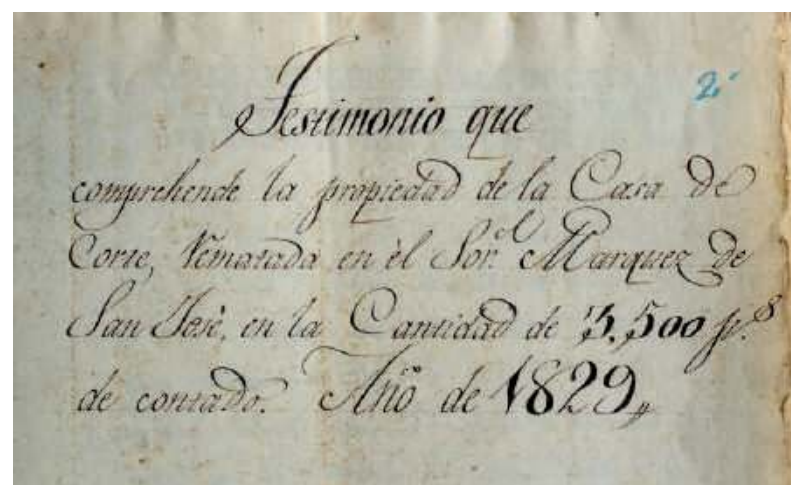 2
Testimonio que
comprehende la propiedad de la Casa de
Corte, Rematada en èl Sor. Marquez de
San José, en la Cantidad de 3.500 p.s
de contado. Año de 1829